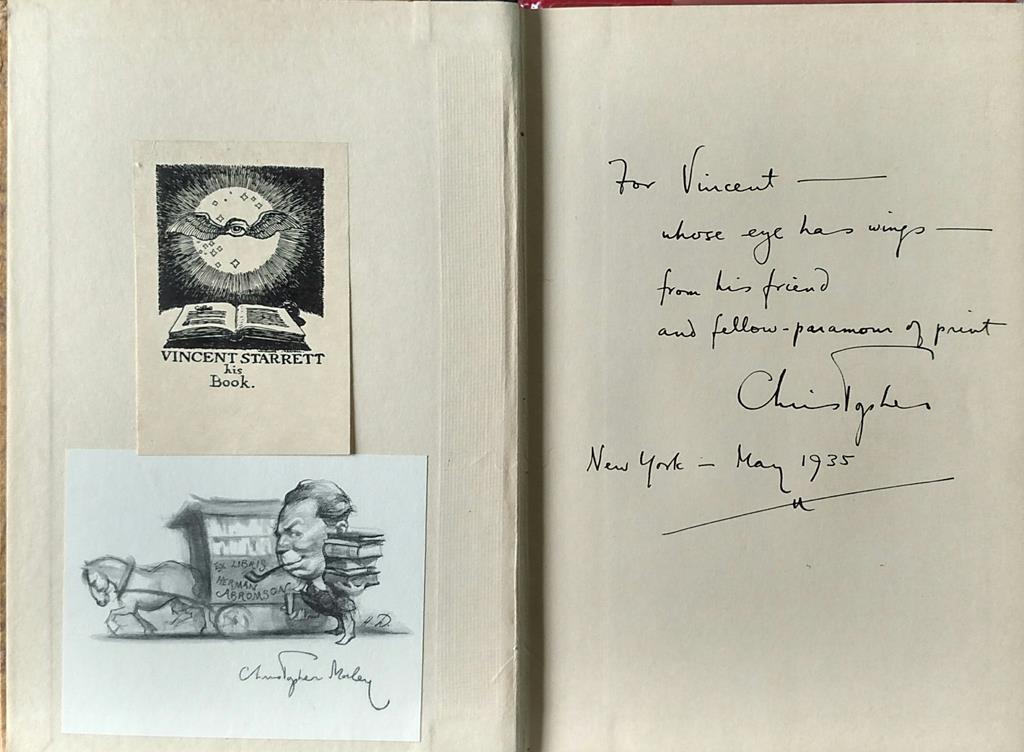 VINCENT STARRETT
his
Book.
EX LIBRIS
HERMAN
ABROMSON
H.D.
Christopher Morley
For Vincent —
whose eye has wings —
from his friend
and fellow-paramour of print
Christopher
New York — May 1935